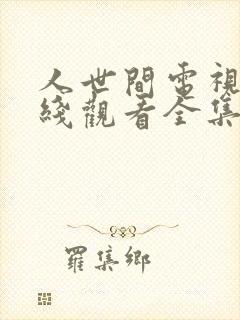 人世間電視
綫觀看全集
羅集鄉